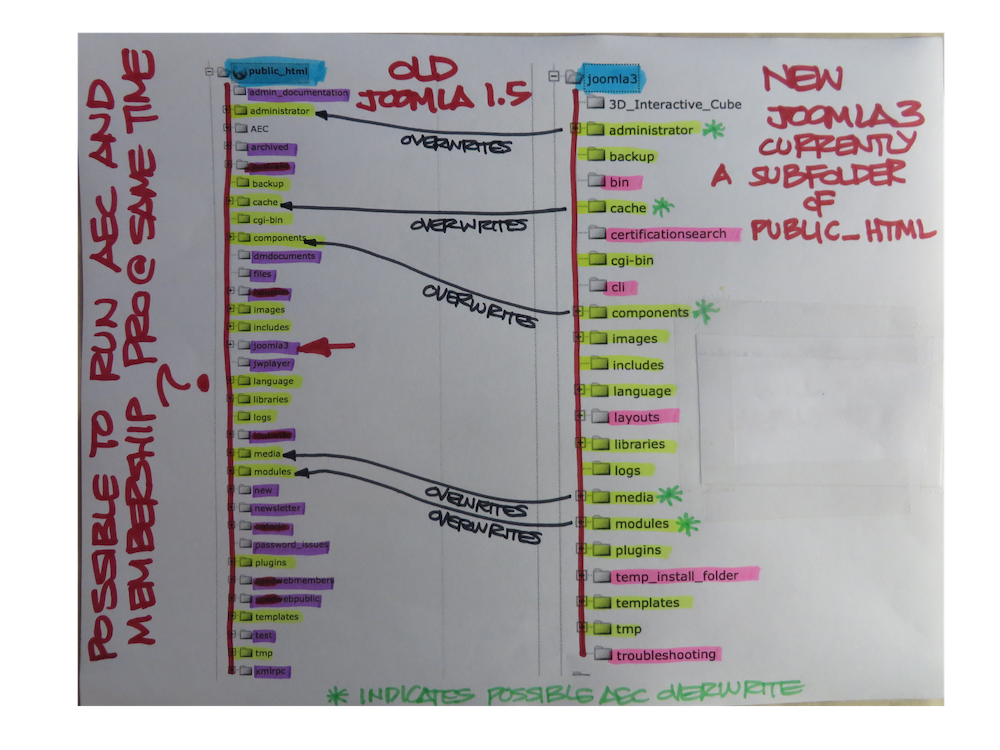 POSSIBLE TO RUN AEC AND
MEMBERSHIP PRO @ SAME TIME
?
public_html
OLD
JOOMLA 1.5
admin_documentation
administrator
AEC
archived
backup
cache
cgi-bin
components
dmdocuments
files
images
includes
joomla3
jwplayer
language
libraries
logs
media
modules
new
newsletter
password_issues
plugins
webmembers
webpublic
templates
test
tmp
xmlrpc
OVERWRITES
OVERWRITES
OVERWRITES
OVERWRITES
OVERWRITES
joomla3
3D_Interactive_Cube
administrator *
backup
bin
cache *
certificationsearch
cgi-bin
cli
components *
images
includes
language
layouts
libraries
logs
media *
modules *
plugins
temp_install_folder
templates
tmp
troubleshooting
NEW
JOOMLA3
CURRENTLY
A SUBFOLDER
OF
PUBLIC_HTML
* INDICATES POSSIBLE AEC OVERWRITE